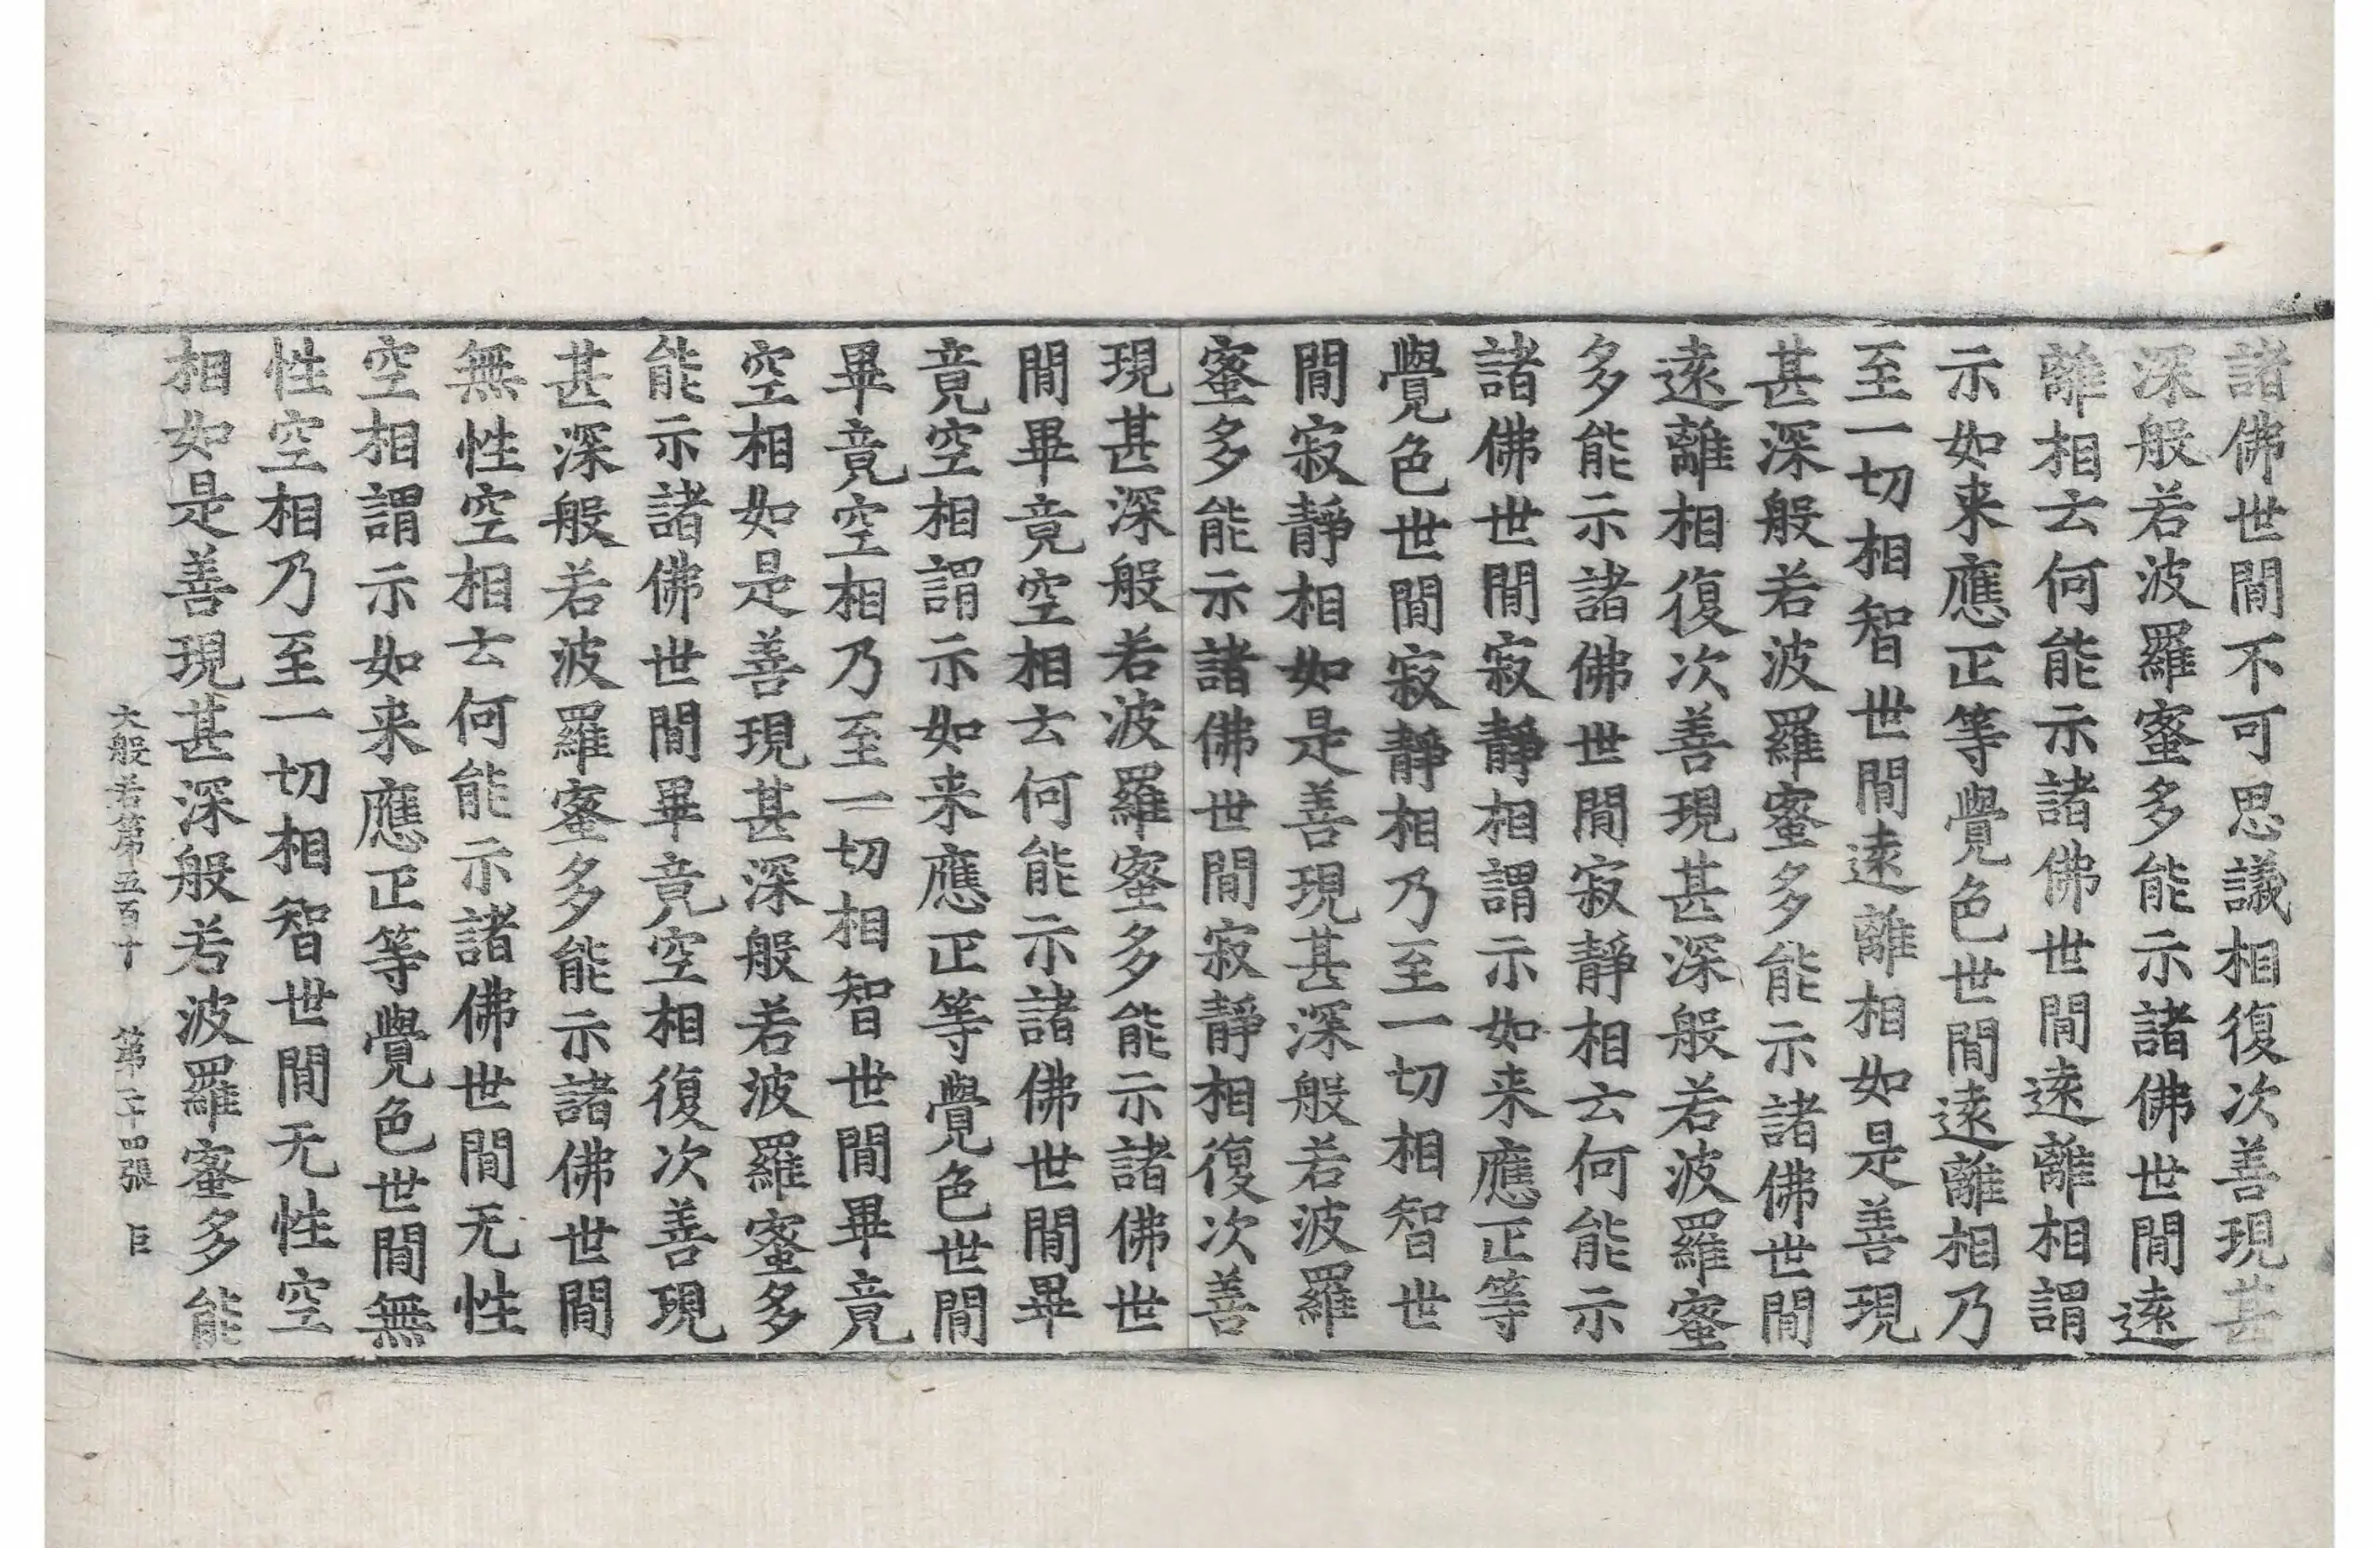 諸佛世閒不可思議相復次善現甚
深般若波羅蜜多能示諸佛世閒遠
離相云何能示諸佛世閒遠離相謂
示如来應正等覺色世閒遠離相乃
至一切相智世閒遠離相如是善現
甚深般若波羅蜜多能示諸佛世閒
遠離相復次善現甚深般若波羅蜜
多能示諸佛世閒寂靜相云何能示
諸佛世閒寂靜相謂示如来應正等
覺色世閒寂靜相乃至一切相智世
閒寂靜相如是善現甚深般若波羅
蜜多能示諸佛世閒寂靜相復次善
現甚深般若波羅蜜多能示諸佛世
閒畢竟空相云何能示諸佛世閒畢
竟空相謂示如来應正等覺色世閒
畢竟空相乃至一切相智世閒畢竟
空相如是善現甚深般若波羅蜜多
能示諸佛世閒畢竟空相復次善現
甚深般若波羅蜜多能示諸佛世閒
無性空相云何能示諸佛世閒无性
空相謂示如来應正等覺色世閒無
性空相乃至一切相智世閒无性空
相如是善現甚深般若波羅蜜多能
大般若第五百十 第二十四張 巨